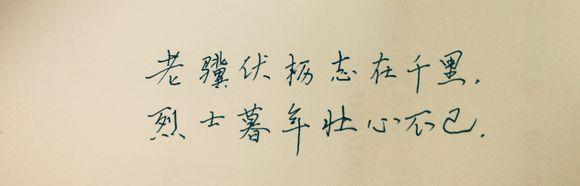 老骥伏枥志在千里.
烈士暮年壮心不已.